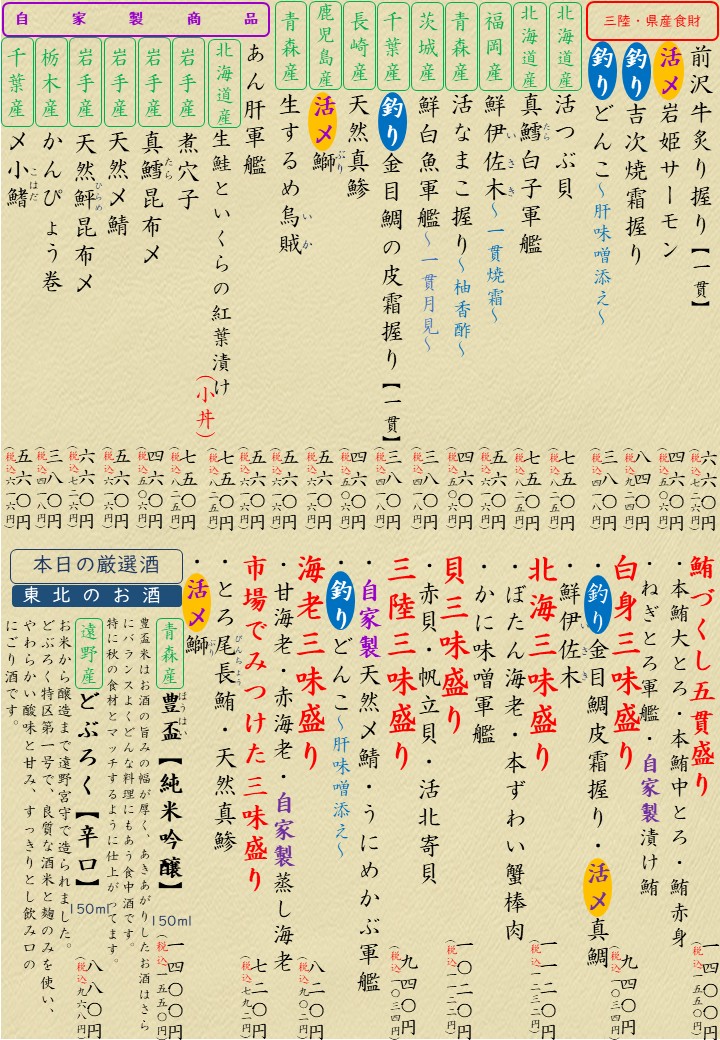 三陸・県産食財
前沢牛炙り握り【一貫】 六六〇円(税込七二六円)
活〆岩姫サーモン 四六〇円(税込五〇六円)
釣り吉次焼霜握り 八四〇円(税込九二四円)
釣りどんこ～肝味噌添え～ 三八〇円(税込四一八円)
北海道産 活つぶ貝 七五〇円(税込八二五円)
北海道産 真鱈白子軍艦 七五〇円(税込八二五円)
たら
福岡産 鮮伊佐木～一貫焼霜～ 五六〇円(税込六一六円)
いさき
青森産 活なまこ握り～柚香酢～ 四六〇円(税込五〇六円)
茨城産 鮮白魚軍艦～一貫月見～ 三八〇円(税込四一八円)
千葉産 釣り金目鯛の皮霜握り【一貫】 三八〇円(税込四一八円)
長崎産 天然真鯵 四六〇円(税込五〇六円)
鹿児島産 活〆鰤 五六〇円(税込六一六円)
ぶり
青森産 生するめ烏賊 五六〇円(税込六一六円)
いか
自家製商品
あん肝軍艦 五六〇円(税込六一六円)
北海道産 生鮭といくらの紅葉漬け(小丼) 七五〇円(税込八二五円)
岩手産 煮穴子 七五〇円(税込八二五円)
岩手産 真鱈昆布〆 四六〇円(税込五〇六円)
たら
岩手産 天然〆鯖 五六〇円(税込六一六円)
岩手産 天然鮃昆布〆 六六〇円(税込七二六円)
ひらめ
栃木産 かんぴょう巻 三八〇円(税込四一八円)
千葉産 〆小鰭 五六〇円(税込六一六円)
こはだ
鮪づくし五貫盛り
・本鮪大とろ・本鮪中とろ・鮪赤身 一四〇〇円(税込一五五〇円)
・ねぎとろ軍艦・自家製漬け鮪
白身三味盛り
・釣り金目鯛皮霜握り・活〆真鯛 九四〇円(税込一〇三四円)
・鮮伊佐木
いさき
北海三味盛り
・ぼたん海老・本ずわい蟹棒肉 一一二〇円(税込一二三二円)
・かに味噌軍艦
貝三味盛り
・赤貝・帆立貝・活北寄貝 一〇二〇円(税込一一二二円)
三陸三味盛り
・自家製天然〆鯖・うにめかぶ軍艦 九四〇円(税込一〇三四円)
・釣りどんこ～肝味噌添え～
海老三味盛り
・甘海老・赤海老・自家製蒸し海老 八二〇円(税込九〇二円)
市場でみつけた三味盛り
・とろ尾長鮪・天然真鯵 七二〇円(税込七九二円)
びんちょう
・活〆鰤
ぶり
本日の厳選酒
東北のお酒
青森産 豊盃【純米吟醸】 150ml 一四〇〇円(税込一五五〇円)
ほうはい
豊盃米はお酒の旨みの幅が厚く、あきあがりしたお酒はさら
にバランスよくどんな料理にもあう食中酒です。
特に秋の食材とマッチするように仕上がってます。
遠野産 どぶろく【辛口】 150ml 八八〇円(税込九六八円)
お米から醸造まで遠野宮守で造られました。
どぶろく特区第一号で、良質な酒米と麹のみを使い、
やわらかい酸味と甘み、すっきりとし飲み口の
にごり酒です。